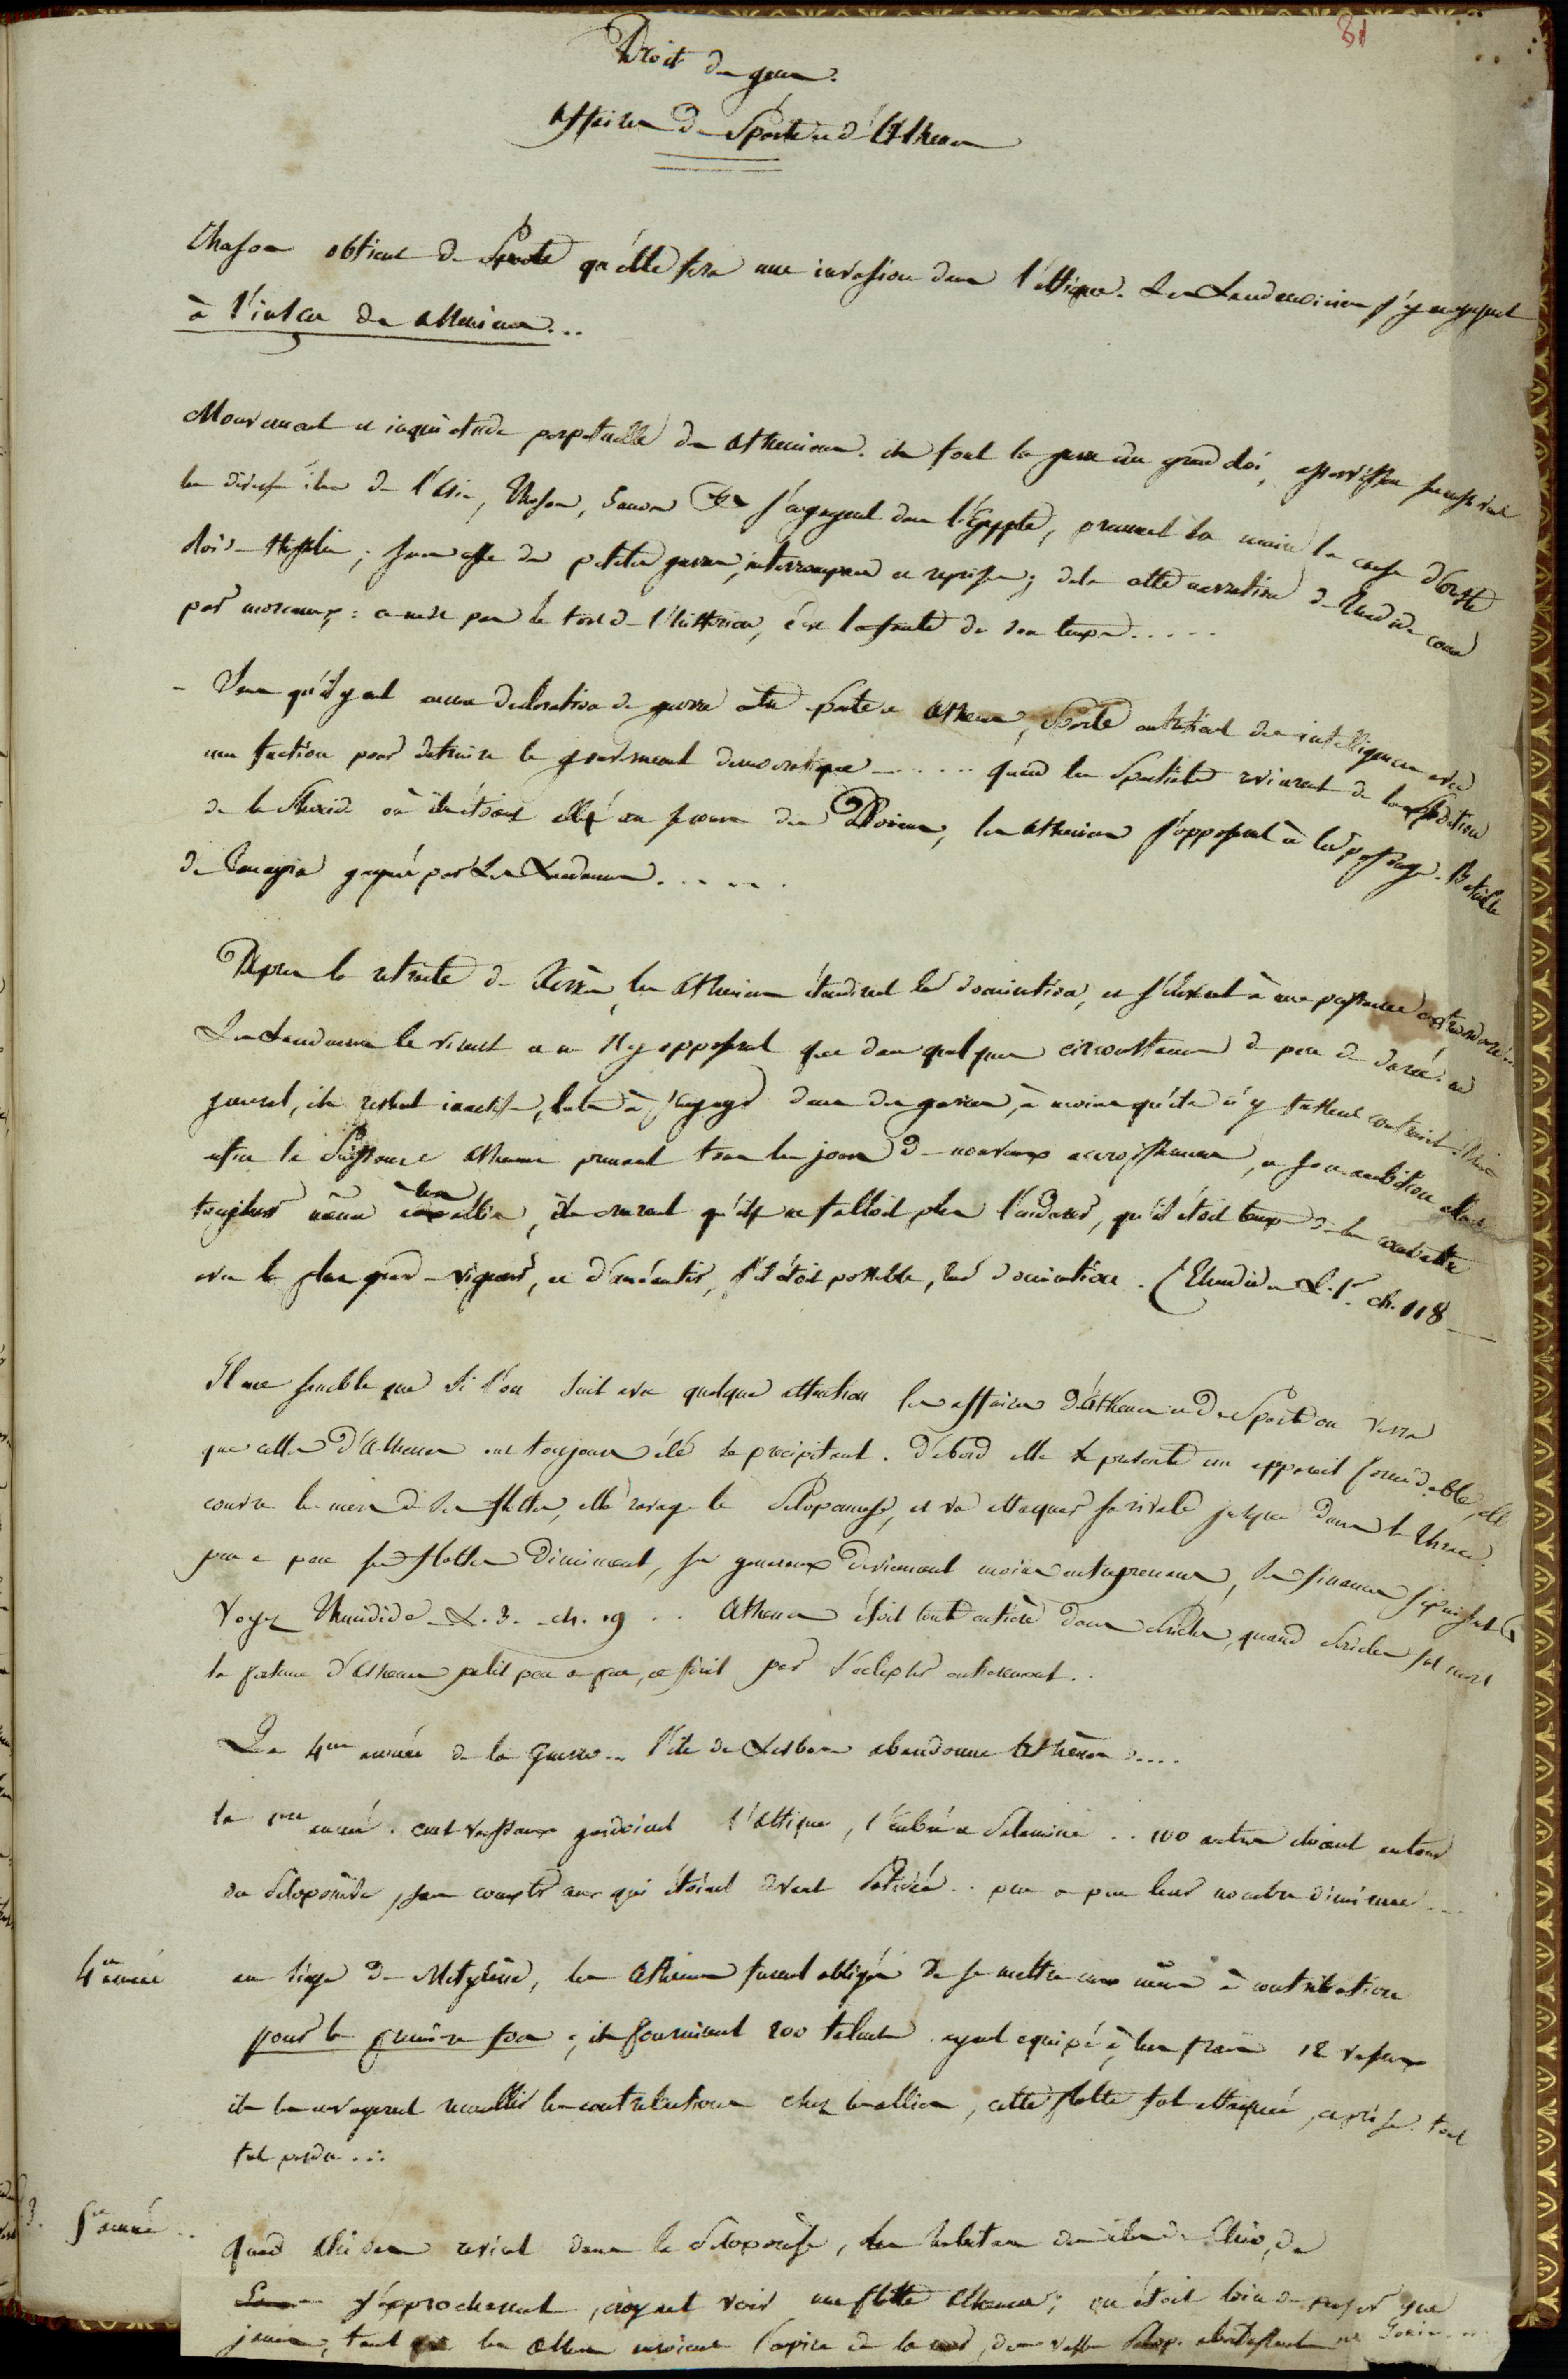 81
Droit des gens.
Affaires de Sparte et d'Athenes
Thasos obtient de Sparte qu'elle fera une invasion dans l'attique. Les Lacedemoniens s'y engagent
à l'insçu des atheniens...
Mouvement et inquiétude perpetuelle des atheniens. ils font la guerre au grand Roi, asservissent
les diverses iles de l'asie, Thasos, Samos &a s'engagent dans l'Égypte, prennent la main la cause d'Oreste
Roi de Thessalie; sans cesse des petites guerres, interrompues et reprises; de la cette narration de Thucidide
par morceaux: ce n'est pas le tort de l'historien, c'est la faute de son temps.....
- Sans qu'il y ait aucune declaration de guerre entre Sparte et Athenes, Sparte entretient des intelligences avec
une faction pour detruire le gouvernement democratique ..... quand les Spartiates revinrent de l'expedition
de la Phocide où ils étoient allés au secours des Doriens, les atheniens s'opposent à leur passage. Bataille
de Tanagra gagnée par les Lacedemon.....
Depuis la retraite de Xerxès, les atheniens étendirent leur domination, et s'élevent à une puissance extraordinaire
Les Lacedemon. le virent et ne s'y opposerent que dans quelques circonstances de peu de durée. en
general, ils restent inactifs, lents à s'engager dans des guerres, à moins qu'ils n'y fussent contraints.
la puissance athenienne prenant tous les jours de nouveaux accroissemens, et son ambition
toujours même à leurs alliés, ils crurent qu'il ne falloit plus l'endurer, qu'il étoit temps de les combattre
avec la plus grande vigueur, et d'anéantir, s'il étoit possible, leur domination. (Thucidide L. 1er. ch. 118
Il me semble que si l'on suit avec quelque attention les affaires d'Athenes et de Sparte on verra
que celles d'Athenes ont toujours été se precipitant. D'abord elle se presente un appareil formidable, elle
couvre les mers de ses flottes, elle ravage le Peloponnese, et va attaquer sa rivale jusque dans la Thrace.
peu a peu ses flottes diminuent, ses generaux deviennent moins entreprenans, ses finances s'epuisent
Voyez Thucidide L. 3. ch. 19 .. Athenes étoit toute entière dans Pericles, quand Pericles fut mort
la fortune d'Athenes palit peu a peu, et finit par s'eclipser entierement..
La 4me année de la guerre... l'ile de Lesbos abandonne Athènes.....
la 1ere année. cent vaisseaux gardoient l'attique, l'Eubée et Salamine .. 100 autres étoient autour
du Peloponese, sans compter ceux qui étoient devant Potidée.. peu a peu leur nombre diminue...
4e année au siege de Mitylène, les atheniens furent obligés de se mettre eux même à contribution
pour la premiere fois; ils fournirent 200 talents. ayant equipé à leurs frais 12 vaisseaux
ils les envoyerent recueillir les contributions chez les alliés, cette flotte fut attaquée, et prise. tout
fut perdu...
5e année .. quand Alcidas revint dans le Peloponese, les habitans des iles de Chio, de
s'approcherent, croyant voir une flotte Athenienne; on étoit loin de penser que
jamais, tant que les Athen. auroient l'empire de la mer, des vaiss. Pelop. aborderoient en Ionie...